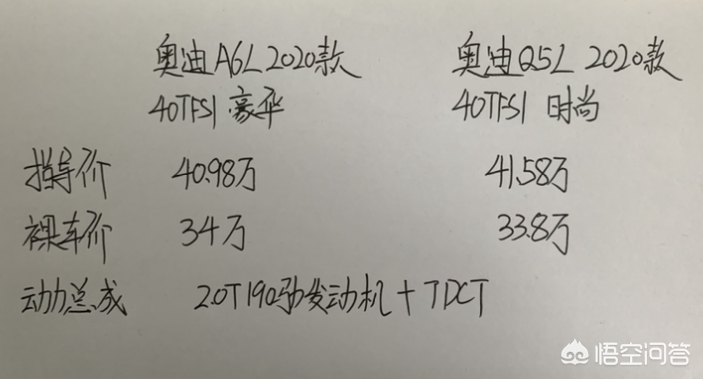 奥迪A6L 2020款 奥迪Q5L 2020款
40TFSI 豪华 40TFSI 时尚
指导价 40.98万 41.58万
裸车价 34万 33.8万
动力总成 2.0T190马力发动机+7DCT
悟空问答